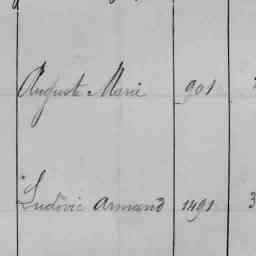 Auguste Marie 901
Ludovic Armand 1491 3